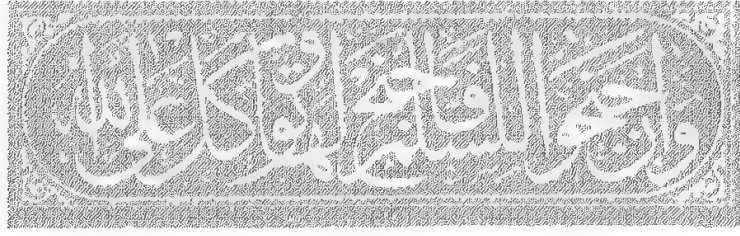 وإن جنحوا للسلم فاجنح لها وتوكل على الله